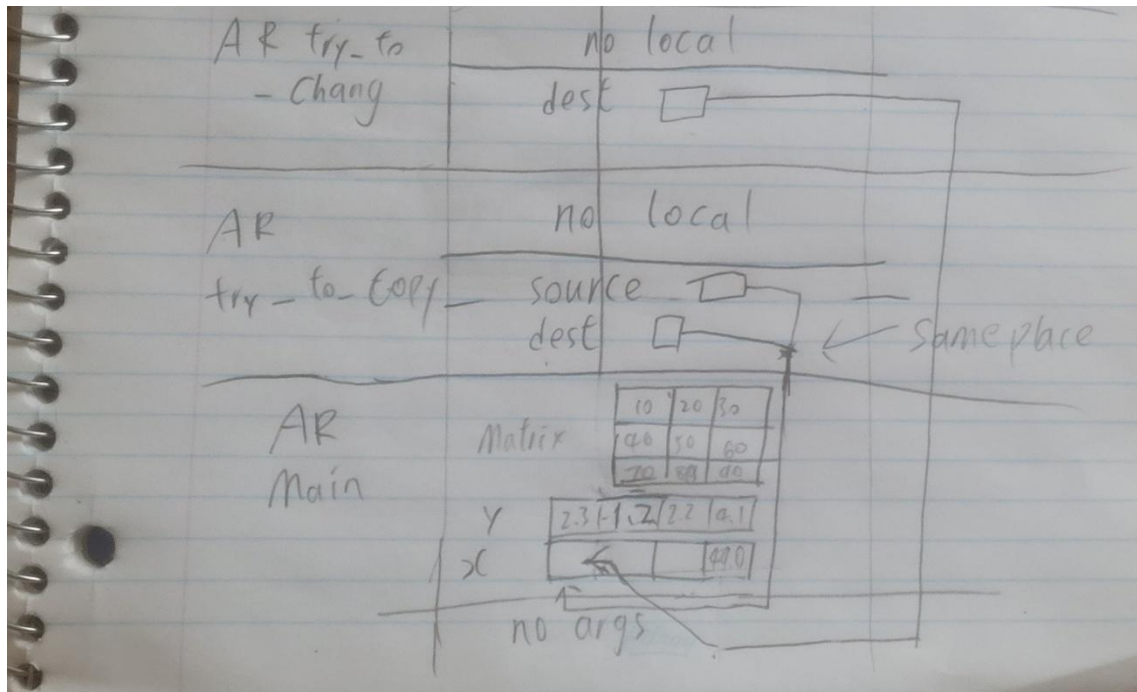 AR try_to
- Chang
no local
dest
AR
try_to_Copy
no local
source
dest
same place
AR
Main
Matrix
10 20 30
40 50 60
70 80 90
Y 2.3 -1.2 2.2 4.1
x 49.0
no args